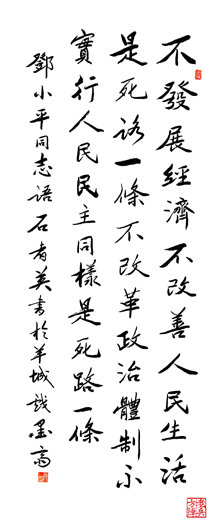 不發展經濟不改善人民生活
是死路一條不改革政治體制不
實行人民民主同樣是死路一條
鄧小平同志語石者英書於羊城戲墨齋